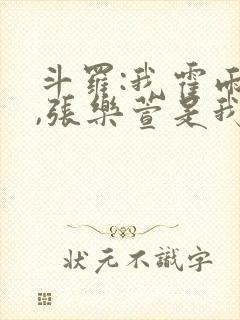 斗羅:我霍雨
,張樂萱是我
狀元不識字